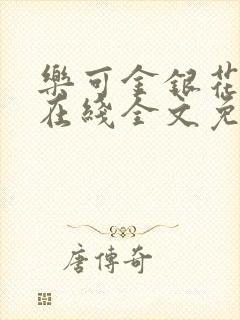 樂可金銀花
在綫全文免
唐傳奇